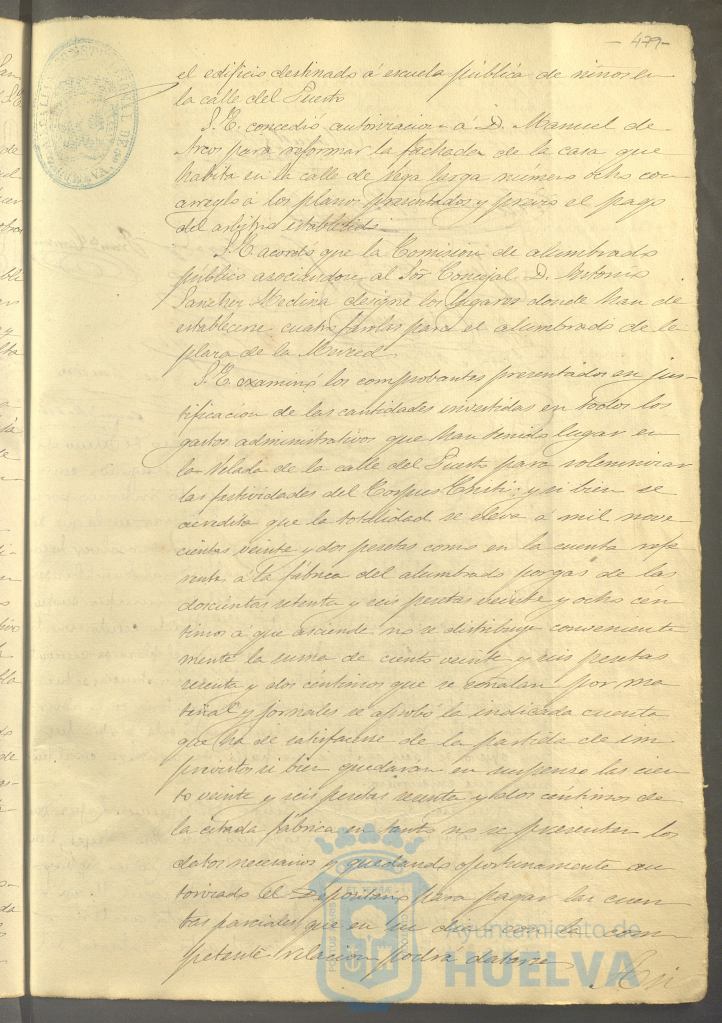 - 479 -
el edificio destinado á escuela pública de niños en
la calle del Puerto
S. E. concedió autorizacion á D. Manuel de
Arcos para reformar la fachada de la casa que
habita en la calle de Vega larga número ocho con
arreglo á los planos presentados y previo el pago
del arbitrio establecido
S. E. acordó que la Comision de alumbrado
público asociandose al Sor. Concejal D. Antonio
Sanchez Medina designe los lugares donde han de
establecerse cuatro farolas para el alumbrado de la
plaza de la Merced
S. E. examinó los comprobantes presentados en jus-
tificacion de las cantidades invertidas en todos los
gastos administrativos que han tenido lugar en
la Velada de la calle del Puerto para solemnizar
las festividades del Corpus Cristi; y si bien se
acredita que la totalidad se eleva á mil nove
cientas veinte y dos pesetas como en la cuenta refe
rente á la fábrica del alumbrado por gas de las
doscientas setenta y seis pesetas veinte y ocho cen
timos á que asciende no se distribuye conveniente
mente la suma de ciento veinte y seis pesetas
sesenta y dos céntimos que se señalan por ma
terial y jornales se aprobó la indicada cuenta
que ha de satisfacerse de la partida de im
previstos si bien quedaran en suspenso las cien
to veinte y seis pesetas sesenta y dos céntimos de
la citada fábrica en tanto no se presenten los
datos necesarios y quedando oportunamente au
torizado el Depositario para pagar las cuen
tas parciales que en su dia y con la com
petente relacion podra datarse
Asi
Ayuntamiento de
HUELVA